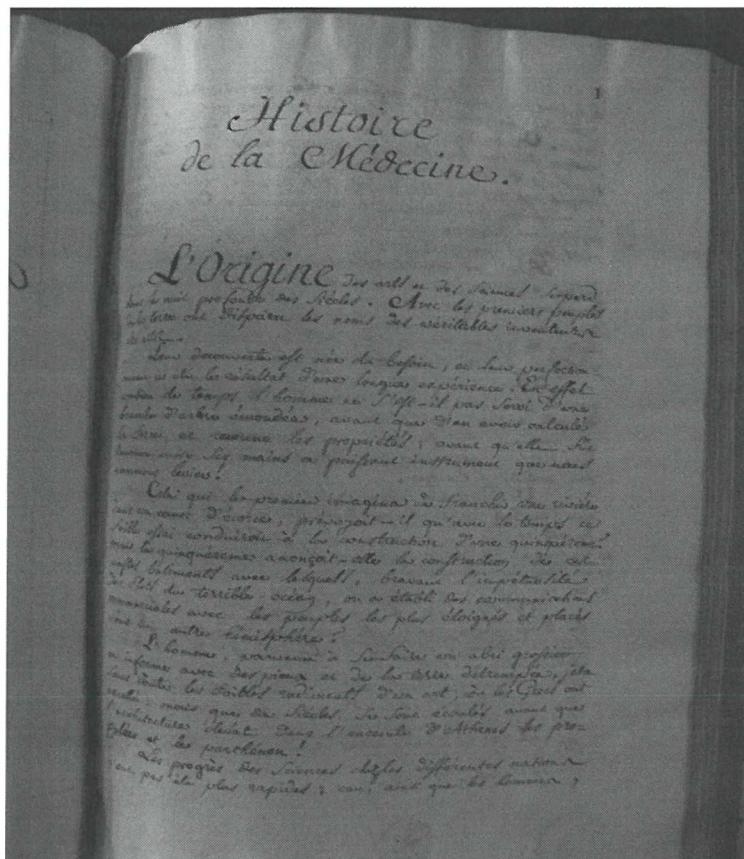 1
Histoire
de la Médecine.
L'Origine des arts et des Sciences se perd
dans la nuit profonde des Siécles. Avec les premiers peuples
de la terre ont disparu les noms des véritables inventeurs
Leur découverte est née du besoin, et leur perfection
a été le résultat d'une longue expérience. En effet
combien de temps l'homme ne s'est-il pas servi d'une
branche d'arbre émondée, avant que d'en avoir calculé
la force, et connu les propriétés; avant qu'elle fut
devenue entre ses mains ce puissant instrument que nous
nommons levier!
Celui qui le premier imagina de franchir une rivière
dans un canot d'écorce, prévoyait-il qu'avec le temps ce
frêle essai conduiroit à la construction d'une quinquérème?
mais la quinquérème annonçait-elle la construction de ces
vastes bâtiments avec lesquels, bravant l'impétuosité
des flots du terrible océan, on a établi des communications
commerciales avec les peuples les plus éloignés et placés
sous un autre hémisphère?
L'homme, parvenu à se faire un abri grossier
et informe avec des pieux et de la terre détrempée, jeta
sans doute les faibles rudiments d'un art, où les Grecs ont
excellé; mais que de Siécles se sont écoulés avant que
l'architecture élevât dans l'enceinte d'Athènes les pro-
pylées et les parthénon!
Les progrès des Sciences chez les différentes nations
n'ont pas été plus rapides; car, ainsi que les hommes,